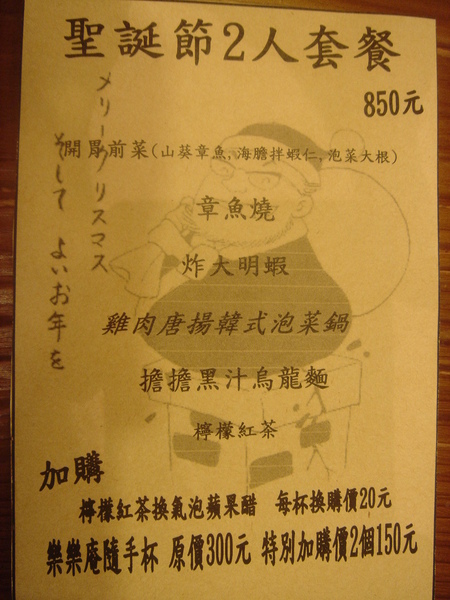 聖誕節2人套餐
850元
メリークリスマス
そして よいお年を
開胃前菜(山葵章魚,海膽拌蝦仁,泡菜大根)
章魚燒
炸大明蝦
雞肉唐揚韓式泡菜鍋
擔擔黑汁烏龍麵
檸檬紅茶
加購
檸檬紅茶換氣泡蘋果醋 每杯換購價20元
樂樂庵隨手杯 原價300元 特別加購價2個150元